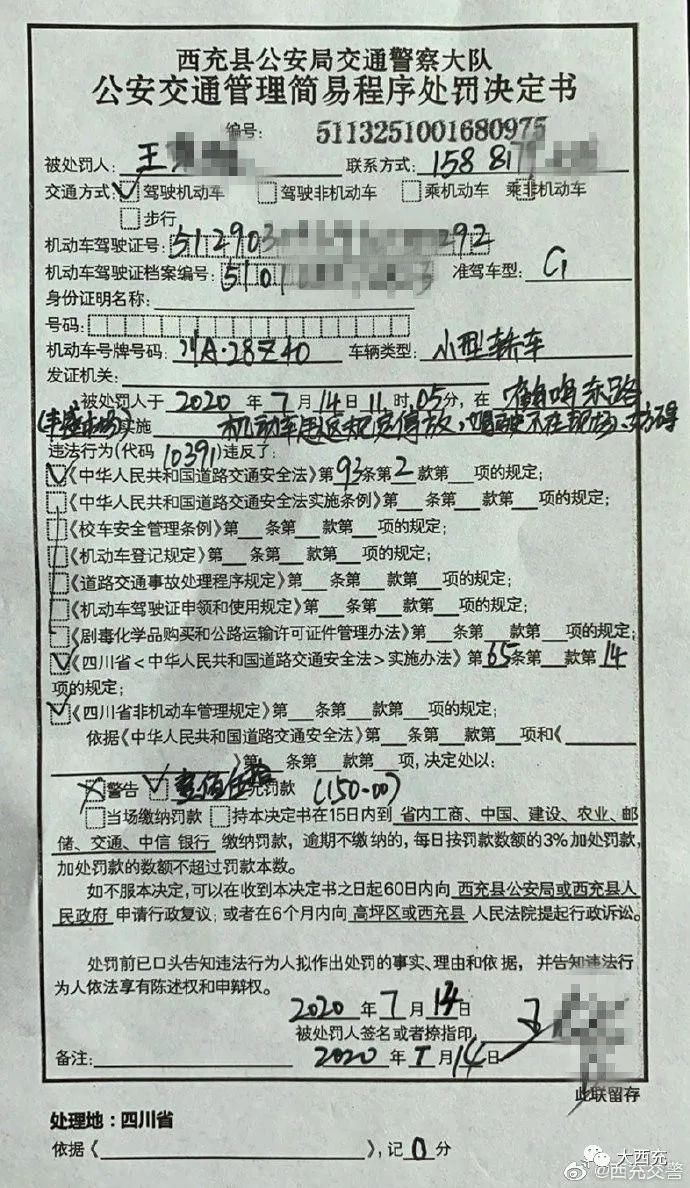 西充县公安局交通警察大队
公安交通管理简易程序处罚决定书
编号: 5113251001680975
被处罚人: 王 联系方式: 158 8179
交通方式: 驾驶机动车 驾驶非机动车 乘机动车 乘非机动车
步行
机动车驾驶证号: 512903 292
机动车驾驶证档案编号: 5101 3 准驾车型: C1
身份证明名称:
号码:
机动车号牌号码: 川A·28Z40 车辆类型: 小型轿车
发证机关:
被处罚人于 2020 年 7 月 14 日 11 时 05 分, 在 东路
实施 机动车违反规定停放、 驶 不在现场、妨碍
违法行为(代码 10391)违反了:
《中华人民共和国道路交通安全法》第93条第2款第__项的规定;
《中华人民共和国道路交通安全法实施条例》第__条第__款第__项的规定;
《校车安全管理条例》第__条第__款第__项的规定;
《机动车登记规定》第__条第__款第__项的规定;
《道路交通事故处理程序规定》第__条第__款第__项的规定;
《机动车驾驶证申领和使用规定》第__条第__款第__项的规定;
《剧毒化学品购买和公路运输许可证件管理办法》第__条第__款第__项的规定;
《四川省<中华人民共和国道路交通安全法>实施办法》第65条第__款第14
项的规定;
《四川省非机动车管理规定》第__条第__款第__项的规定;
依据《中华人民共和国道路交通安全法》第__条第__款第__项和《
》第__条第__款第__项, 决定处以:
警告 元罚款 (150.00)
当场缴纳罚款 持本决定书在15日内到 省内工商、中国、建设、农业、邮
储、交通、中信 银行 缴纳罚款, 逾期不缴纳的, 每日按罚款数额的3%加处罚款,
加处罚款的数额不超过罚款本数。
如不服本决定, 可以在收到本决定书之日起60日内向 西充县公安局或西充县人
民政府 申请行政复议; 或者在6个月内向 高坪区或西充县 人民法院提起行政诉讼。
处罚前已口头告知违法行为人拟作出处罚的事实、理由和依据, 并告知违法行
为人依法享有陈述权和申辩权。
2020 年 7 月 14 日
被处罚人签名或者捺指印: 王
备注: 2020 年 7 月 14 日
此联留存
处理地: 四川省
依据《 》, 记 0 分
大西充
@西充交警